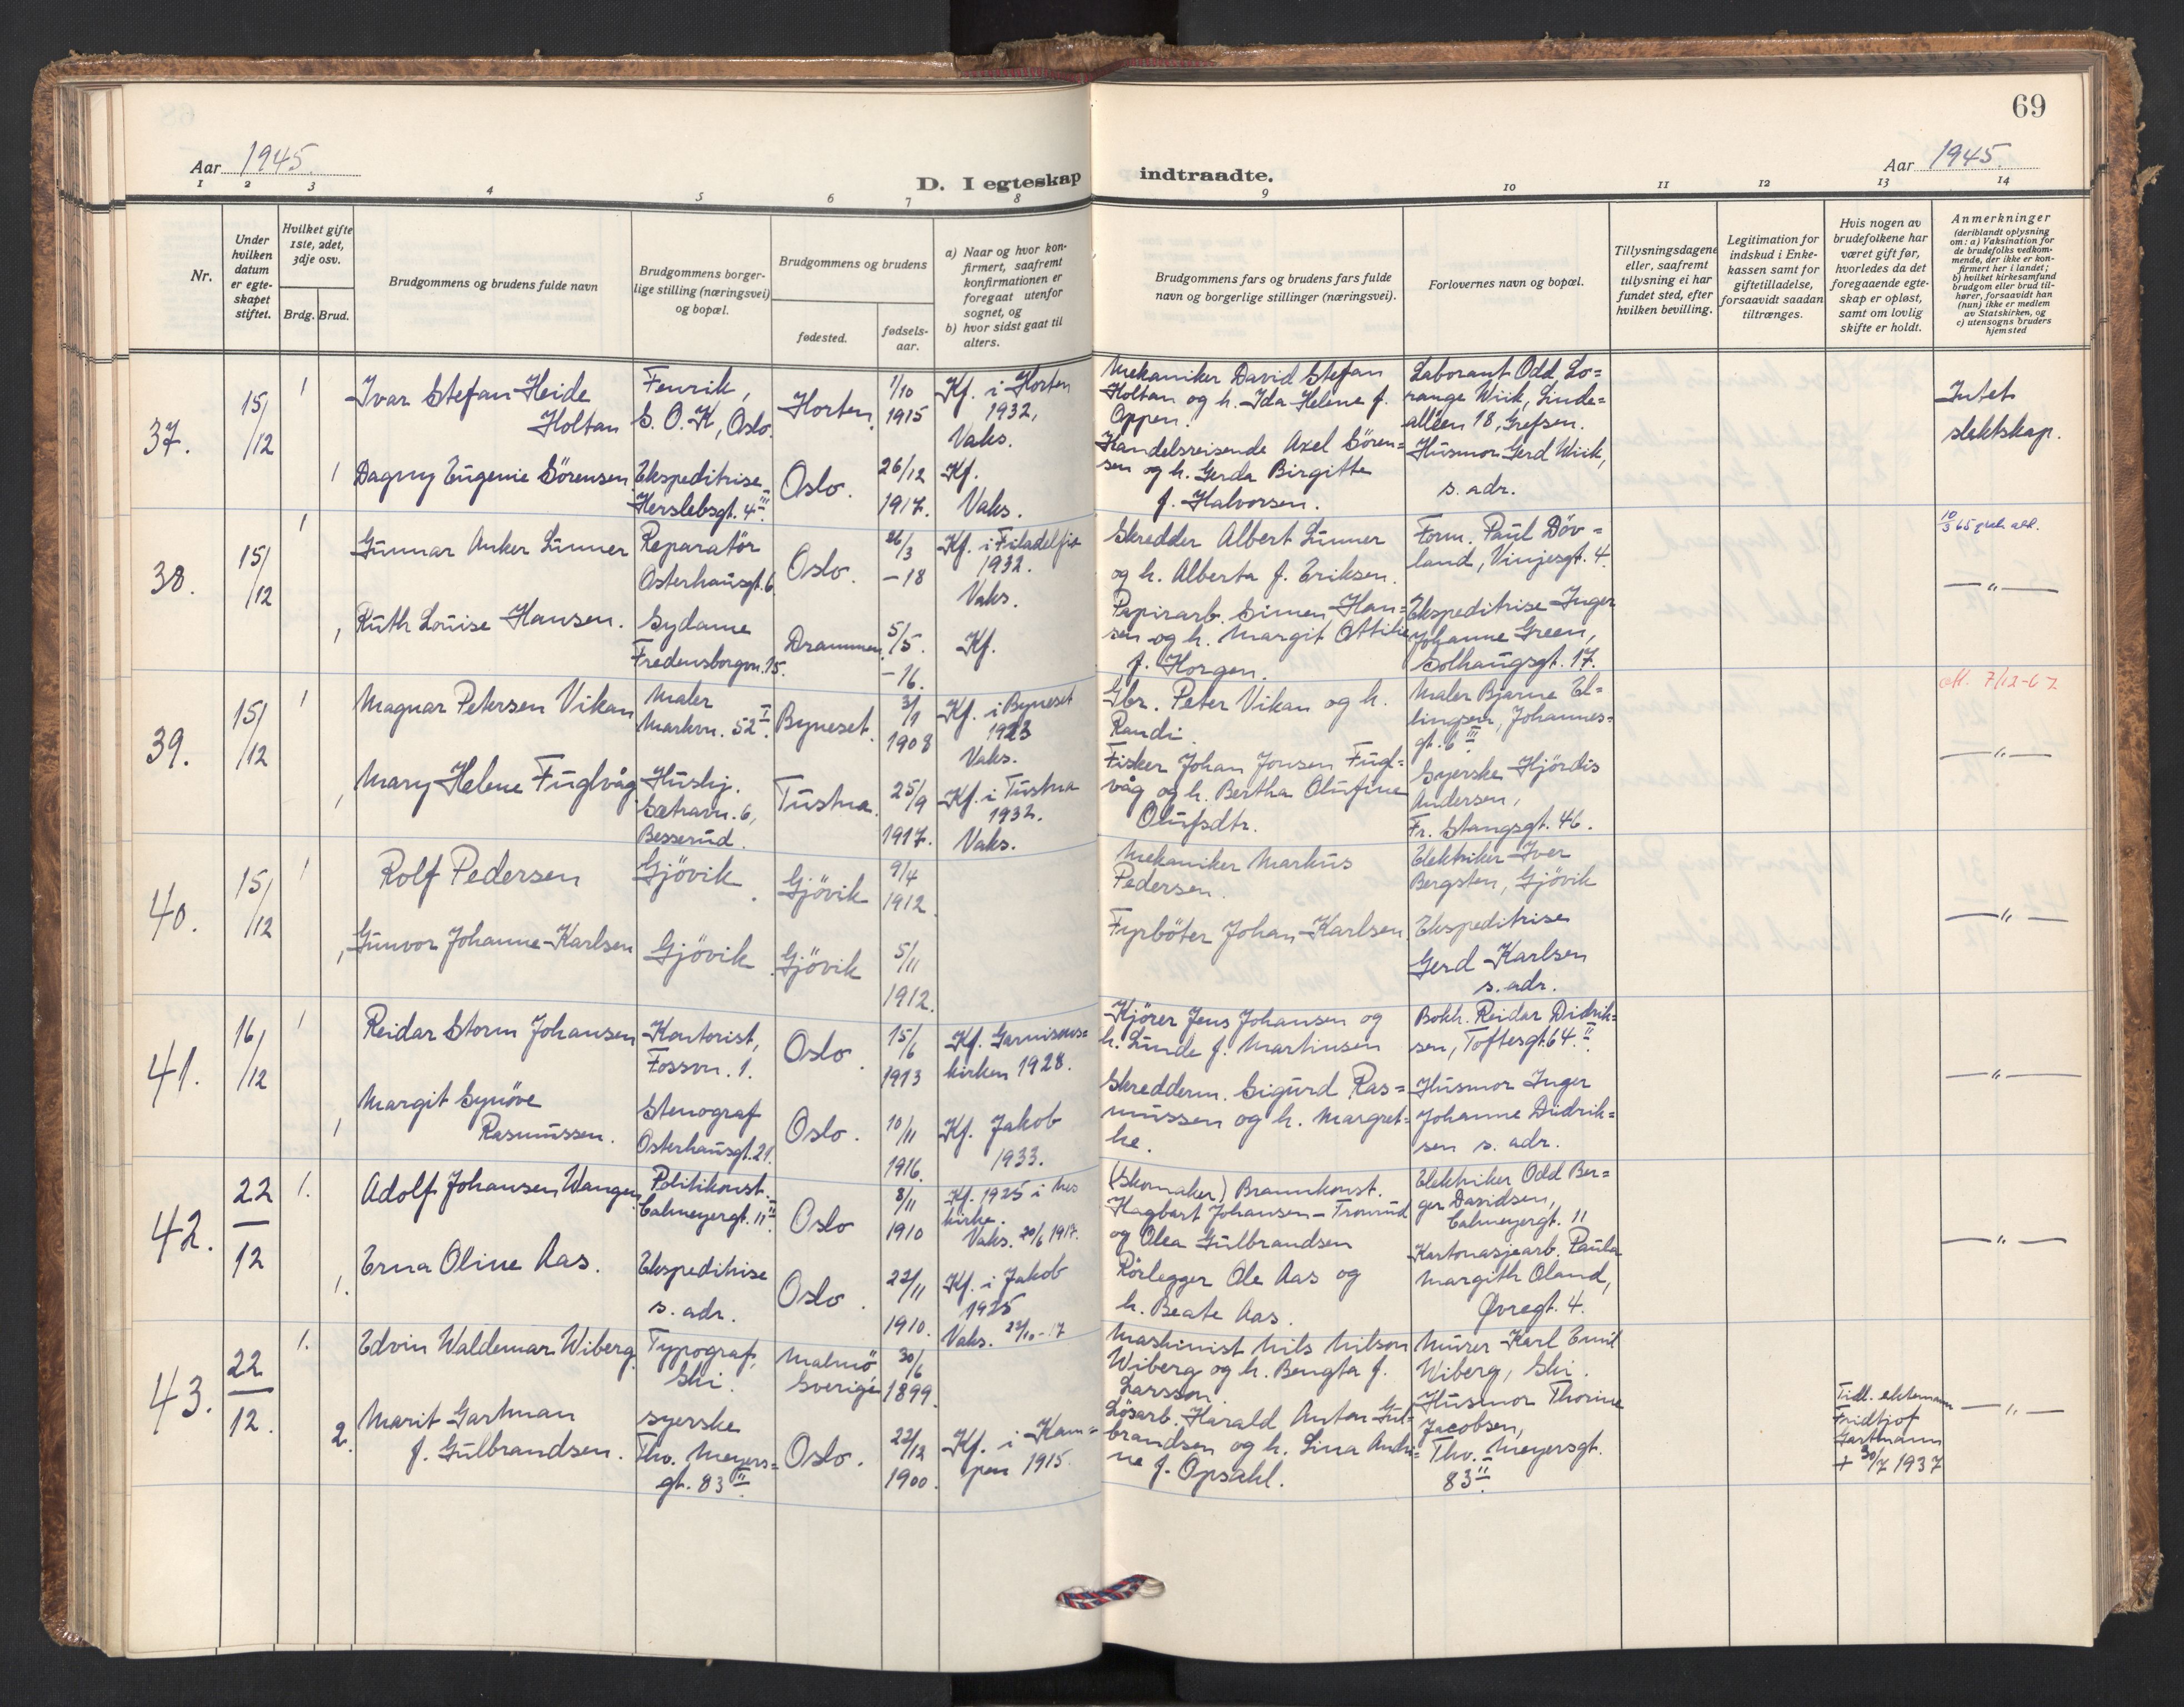 69
Aar 1945.
D. I egteskap indtraadte.
Aar 1945.
1 2 3 4 5 6 7 8 9 10 11 12 13 14
Nr.
Under hvilken datum er egteskapet stiftet.
Hvilket gifte 1ste, 2det, 3dje osv.
Brdg. Brud.
Brudgommens og brudens fulde navn
Brudgommens borgerlige stilling (næringsvei) og bopæl.
Brudgommens og brudens
fødested.
fødselsaar.
a) Naar og hvor konfirmert, saafremt konfirmationen er foregaat utenfor sognet, og
b) hvor sidst gaat til alters.
Brudgommens fars og brudens fars fulde navn og borgerlige stillinger (næringsvei).
Forlovernes navn og bopæl.
Tillysningsdagene eller, saafremt tillysning ei har fundet sted, efter hvilken bevilling.
Legitimation for indskud i Enkekassen samt for giftetilladelse, forsaavidt saadan tiltrænges.
Hvis nogen av brudefolkene har været gift før, hvorledes da det foregaaende egteskap er opløst, samt om lovlig skifte er holdt.
Anmerkninger (deriblandt oplysning om: a) Vaksination for de brudefolks vedkommende, der ikke er konfirmert her i landet; b) hvilket kirkesamfund brudgom eller brud tilhører, forsaavidt han (hun) ikke er medlem av Statskirken, og c) utensogns bruders hjemsted
37.
15/12
1
Ivar Stefan Heide
Holtan
Fenrik,
S. O. K, Oslo.
Horten.
1/10
1915
Kf. i Horten
1932,
Vaks.
Mekaniker David Stefan
Holtan og h. Ida Helene f.
Oppen.
Laborant Odd Lo=
range Wiik, Linde=
alléen 18, Grefsen.
Intet
slektskap.
1
Dagny Eugenie Sörensen
Ekspeditrise
Herslebsgt. 4 III.
Oslo.
26/12
1917.
Kf.
Vaks.
Handelsreisende Axel Sören=
sen og h. Gerda Birgitte
f. Halvorsen.
Husmor Gerd Wiik,
s. adr.
38.
15/12
1
Gunnar Anker Linner
Reparatør
Osterhausgt. 6
Oslo.
26/3
-18
Kf. i Filadelfia
1932.
Vaks.
Skredder Albert Linner
og h. Alberta f. Eriksen.
Form. Paul Döv=
land, Vinjesgt. 4.
— " —
1
Ruth Louise Hansen.
Sydame
Fredensborgvn. 15.
Drammen.
5/5.
-16.
Kf.
Papirarb. Simen Han=
sen og h. Margit Ottilie
f. Horgen.
Ekspeditrise Inger
Johanne Green,
Solhaugsgt. 17.
39.
15/12
1
Magnar Petersen Vikan
Maler
Markvn. 52 I.
Byneset.
3/1
1908
Kf. i Byneset
1923
Vaks.
Gbr. Peter Vikan og h.
Randi.
Maler Bjarne El=
lingsen, Johannes=
gt. 6 III
att. 7/12-62
— " —
1
Mary Helene Fuglvåg
Hushj.
Sætravn. 6,
Besserud.
Tustna.
25/9
1917.
Kf. i Tustna
1932.
Vaks.
Fisker Johan Jonsen Fugl=
våg og h. Bertha Olufine
Olufsdtr.
Syerske Hjördis
Andersen,
Fr. Stangsgt. 46.
40.
15/12
1
Rolf Pedersen
Gjövik.
Gjövik
9/4
1912.
Mekaniker Markus
Pedersen.
Elektriker Iver
Bergsten, Gjövik
— " —
1
Gunvor Johanne Karlsen
Gjövik.
Gjövik
5/11
1912.
Fyrböter Johan Karlsen.
Ekspeditrise
Gerd Karlsen
s. adr.
41.
16/12
1
Reidar Storm Johansen
Kontorist,
Fossvn. 1.
Oslo.
15/6
1913
Kf. Garnisons=
kirken 1928.
Kjörer Jens Johansen og
h. Linde f. Martinsen
Bokh. Reidar Didrik=
sen, Toftesgt. 64. II
— " —
1
Margit Synöve
Rasmussen.
Stenograf
Osterhausgt. 21.
Oslo.
10/11
1916.
Kf. Jakob
1933.
Skredderm. Sigurd Ras=
mussen og h. Margret=
he.
Husmor Inger
Johanne Didrik=
sen s. adr.
42.
22/12
1.
Adolf Johansen Wangen
Politikonst.
Calmeyergt. 11 II.
Oslo
8/11
1910
Kf. 1925 i Nes
kirke.
Vaks. 20/6 1917.
(Skomaker) Brannkonst.
Hagbart Johansen-Tronrud
og Olea Gulbrandsen
Elektriker Odd Ber=
ger Davidsen,
Calmeyergt. 11
— " —
1.
Erna Oline Aas.
Ekspeditrise
s. adr.
Oslo.
22/11
1910.
Kf. i Jakob
1925
Vaks. 22/10-17
Rörlegger Ole Aas og
h. Beate Aas.
Kartonasjearb. Paula
Margith Oland,
Øvregt. 4.
43.
22/12.
1.
Edvin Waldemar Wiberg.
Typograf,
Ski.
Malmö
Sverige
30/6
1899.
Maskinist Nils Nilson
Wiberg og h. Bengta f.
Larsson.
Murer Karl Emil
Wiberg, Ski.
— " —
2.
Marit Gartman
f. Gulbrandsen.
syerske
Thv. Meyers=
gt. 83 II.
Oslo.
22/12
1900.
Kf. i Kam=
pen 1915.
Lösarb. Harald Anton Gul=
brandsen og h. Lina Andri=
ne f. Opsahl.
Husmor Thorine
Jacobsen,
Thv. Meyersgt.
83 II.
Tidl. ektemann
Fridtjof
Gartmann
+ 30/7 1937